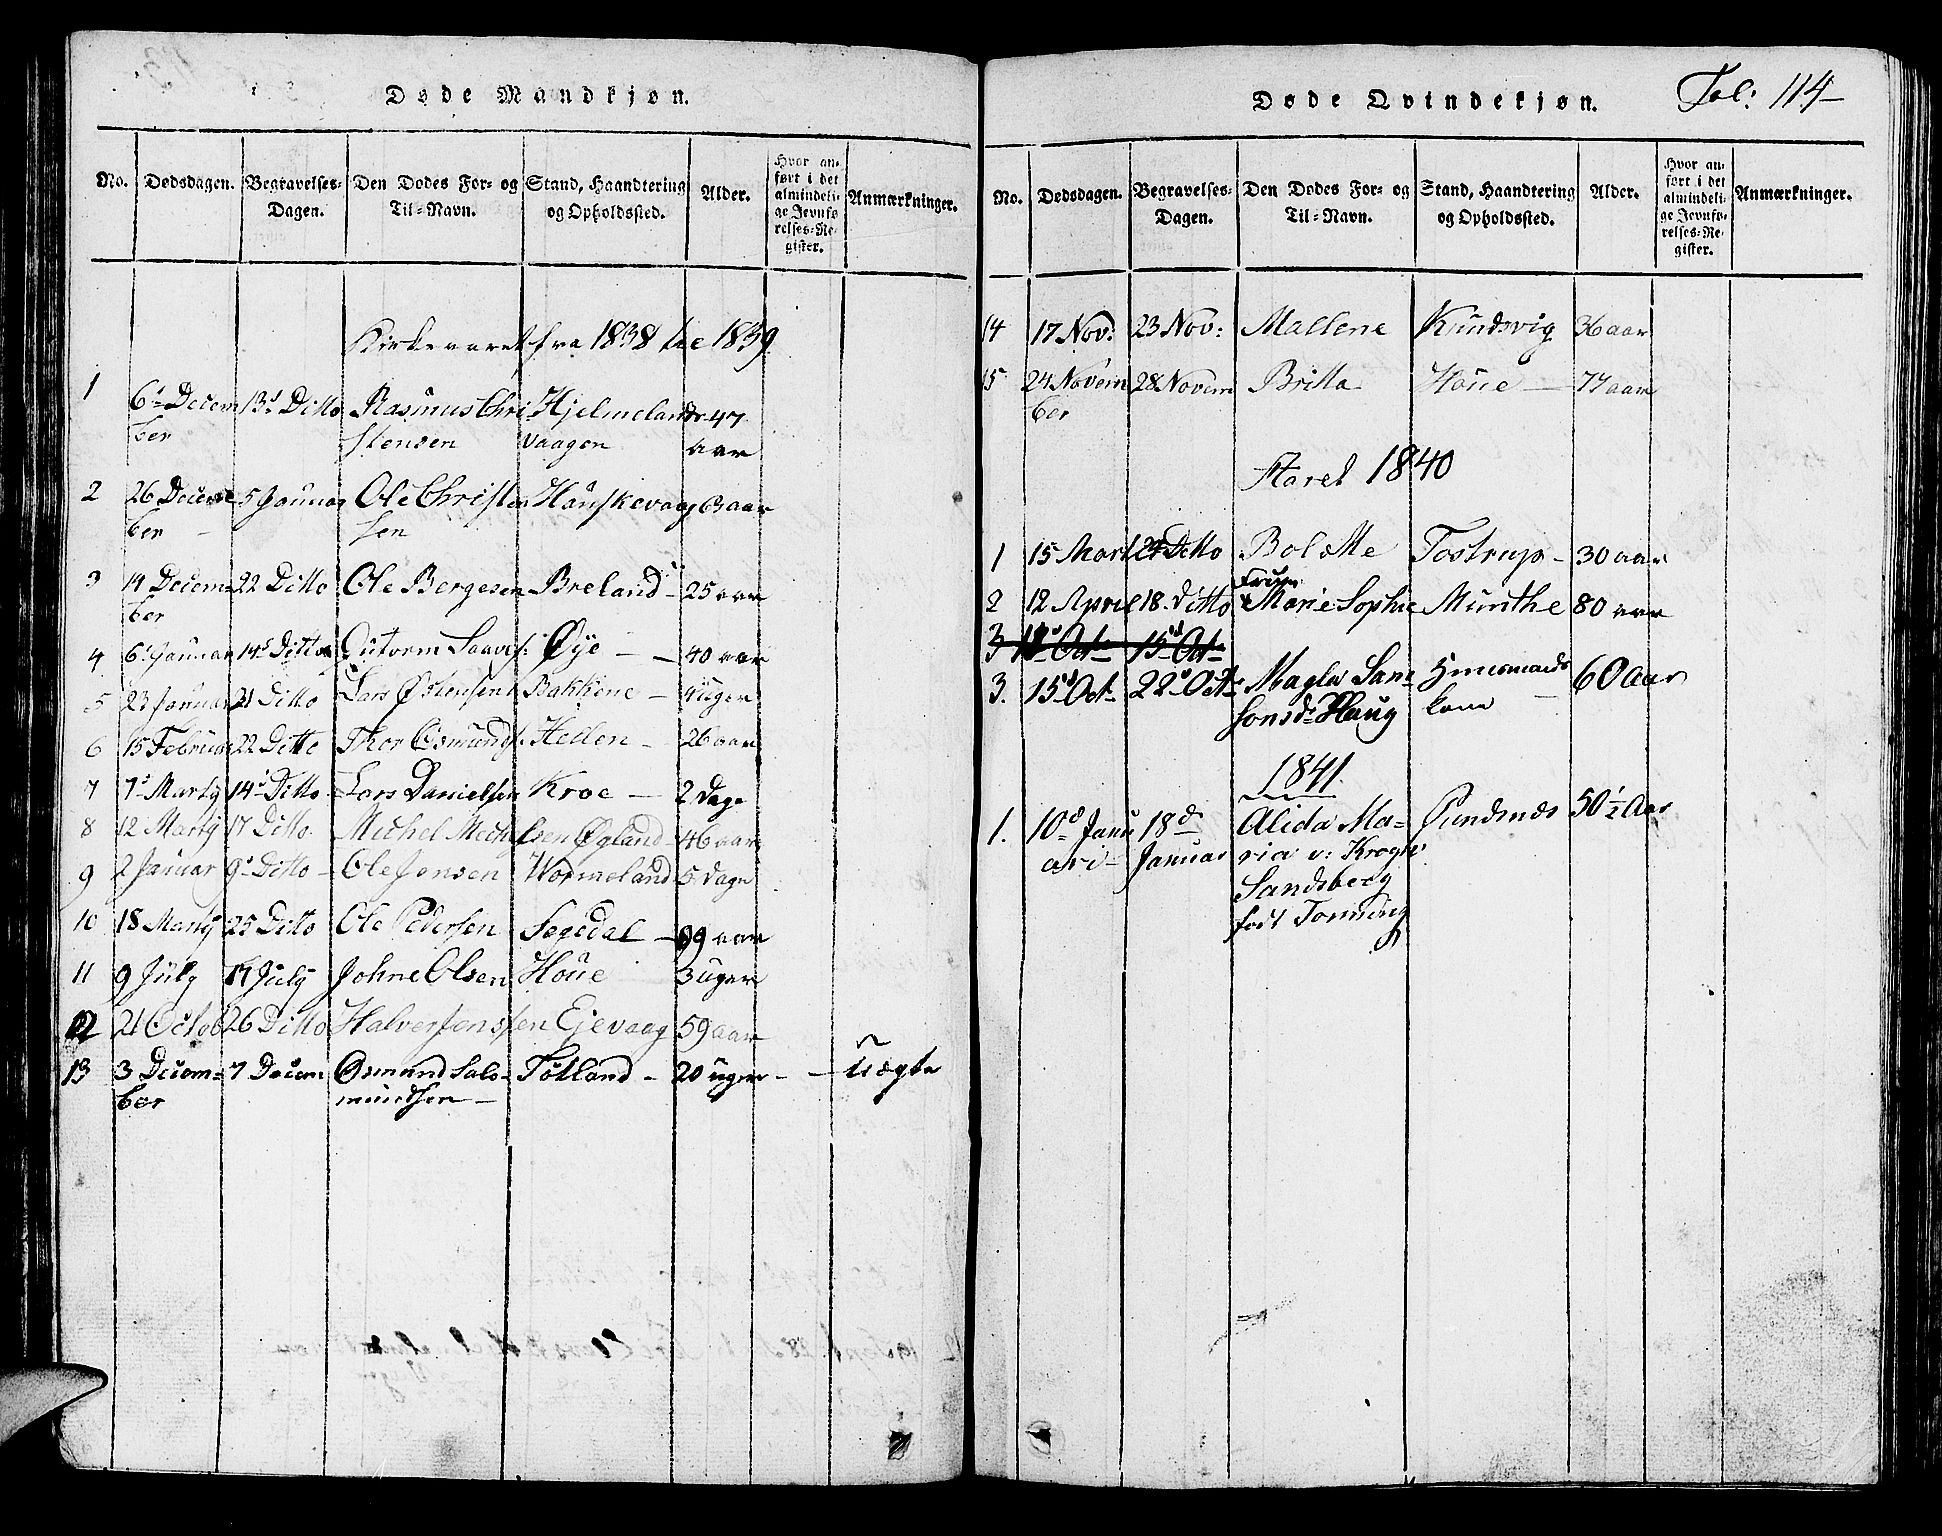 Døde Mandkjøn.
No. Dødsdagen. Begravelses-Dagen. Den Dødes For- og Til-Navn. Stand, Haandtering og Opholdssted. Alder. Hvor anført i det almindelige Jevnførelses-Register. Anmærkninger.
Kirkeaaret fra 1838 til 1839
1 6t Decem 13d Ditto Rasmus Chri Hjelmelands 47
ber stensen vaagen aar
2 26 Decem 5 Januar Ole Christen Hauskevaag 63 aar
ber sen
3 14 Decem= 22 Ditto Ole Bergesen Breland - 25 aar
ber
4 6t Januar 14d Ditto Gutorm Øye - 40 aar
5 23 Januar 21 Ditto Lars Østensen Bakkene - 4 uger
6 15 Februar 22 Ditto Thor Osmunds: Hellen - 26 aar
7 7d Martz 14d Ditto Lars Danielsen Kroe - 2 Dage
8 12 Martz 17 Ditto Michel Michelsen Øgland - 46 aar
9 2 Januar 9d Ditto - Ole Jensen Wormeland 5 Dage
10 18 Martz 25 Ditto Ole Pedersen Segedal - 39 aar
11 9 July 14 July Johne Olsen Houe 3 uger
12 21 Octob 26 Ditto Halver Jenssen Ejevaag 59 aar
13 3 Decem= 7 Decem Osmund Salo- Totland - 20 uger - - uægte
ber mundsen -
Døde Qvindekjøn.
Fol: 114
No. Dødsdagen. Begravelses-Dagen. Den Dødes For- og Til-Navn. Stand, Haandtering og Opholdssted. Alder. Hvor anført i det almindelige Jevnførelses-Register. Anmærkninger.
14 17 Nov: 23 Nov: Mallene Knudsvig 36 aar
15 24 Novem 28 Novem Britta Houe - 77 aar
ber
Aaret 1840
1 15 Mart 24 Ditto Bolette Tostrup - 30 aar
Frue
2 12 April 18 Ditto Marie Sophie Munthe 80 aar
3 Oct 15d Oct
3. 15d Oct 22d Oct Magla San= Huusmands 60 Aar
sonsd. Haug kone
1841.
1. 10d Janu 18d Alida Ma= Pundsnes 50½ Aar
ari - Januar ria v: Krogh
Sandsberg
født Tonning